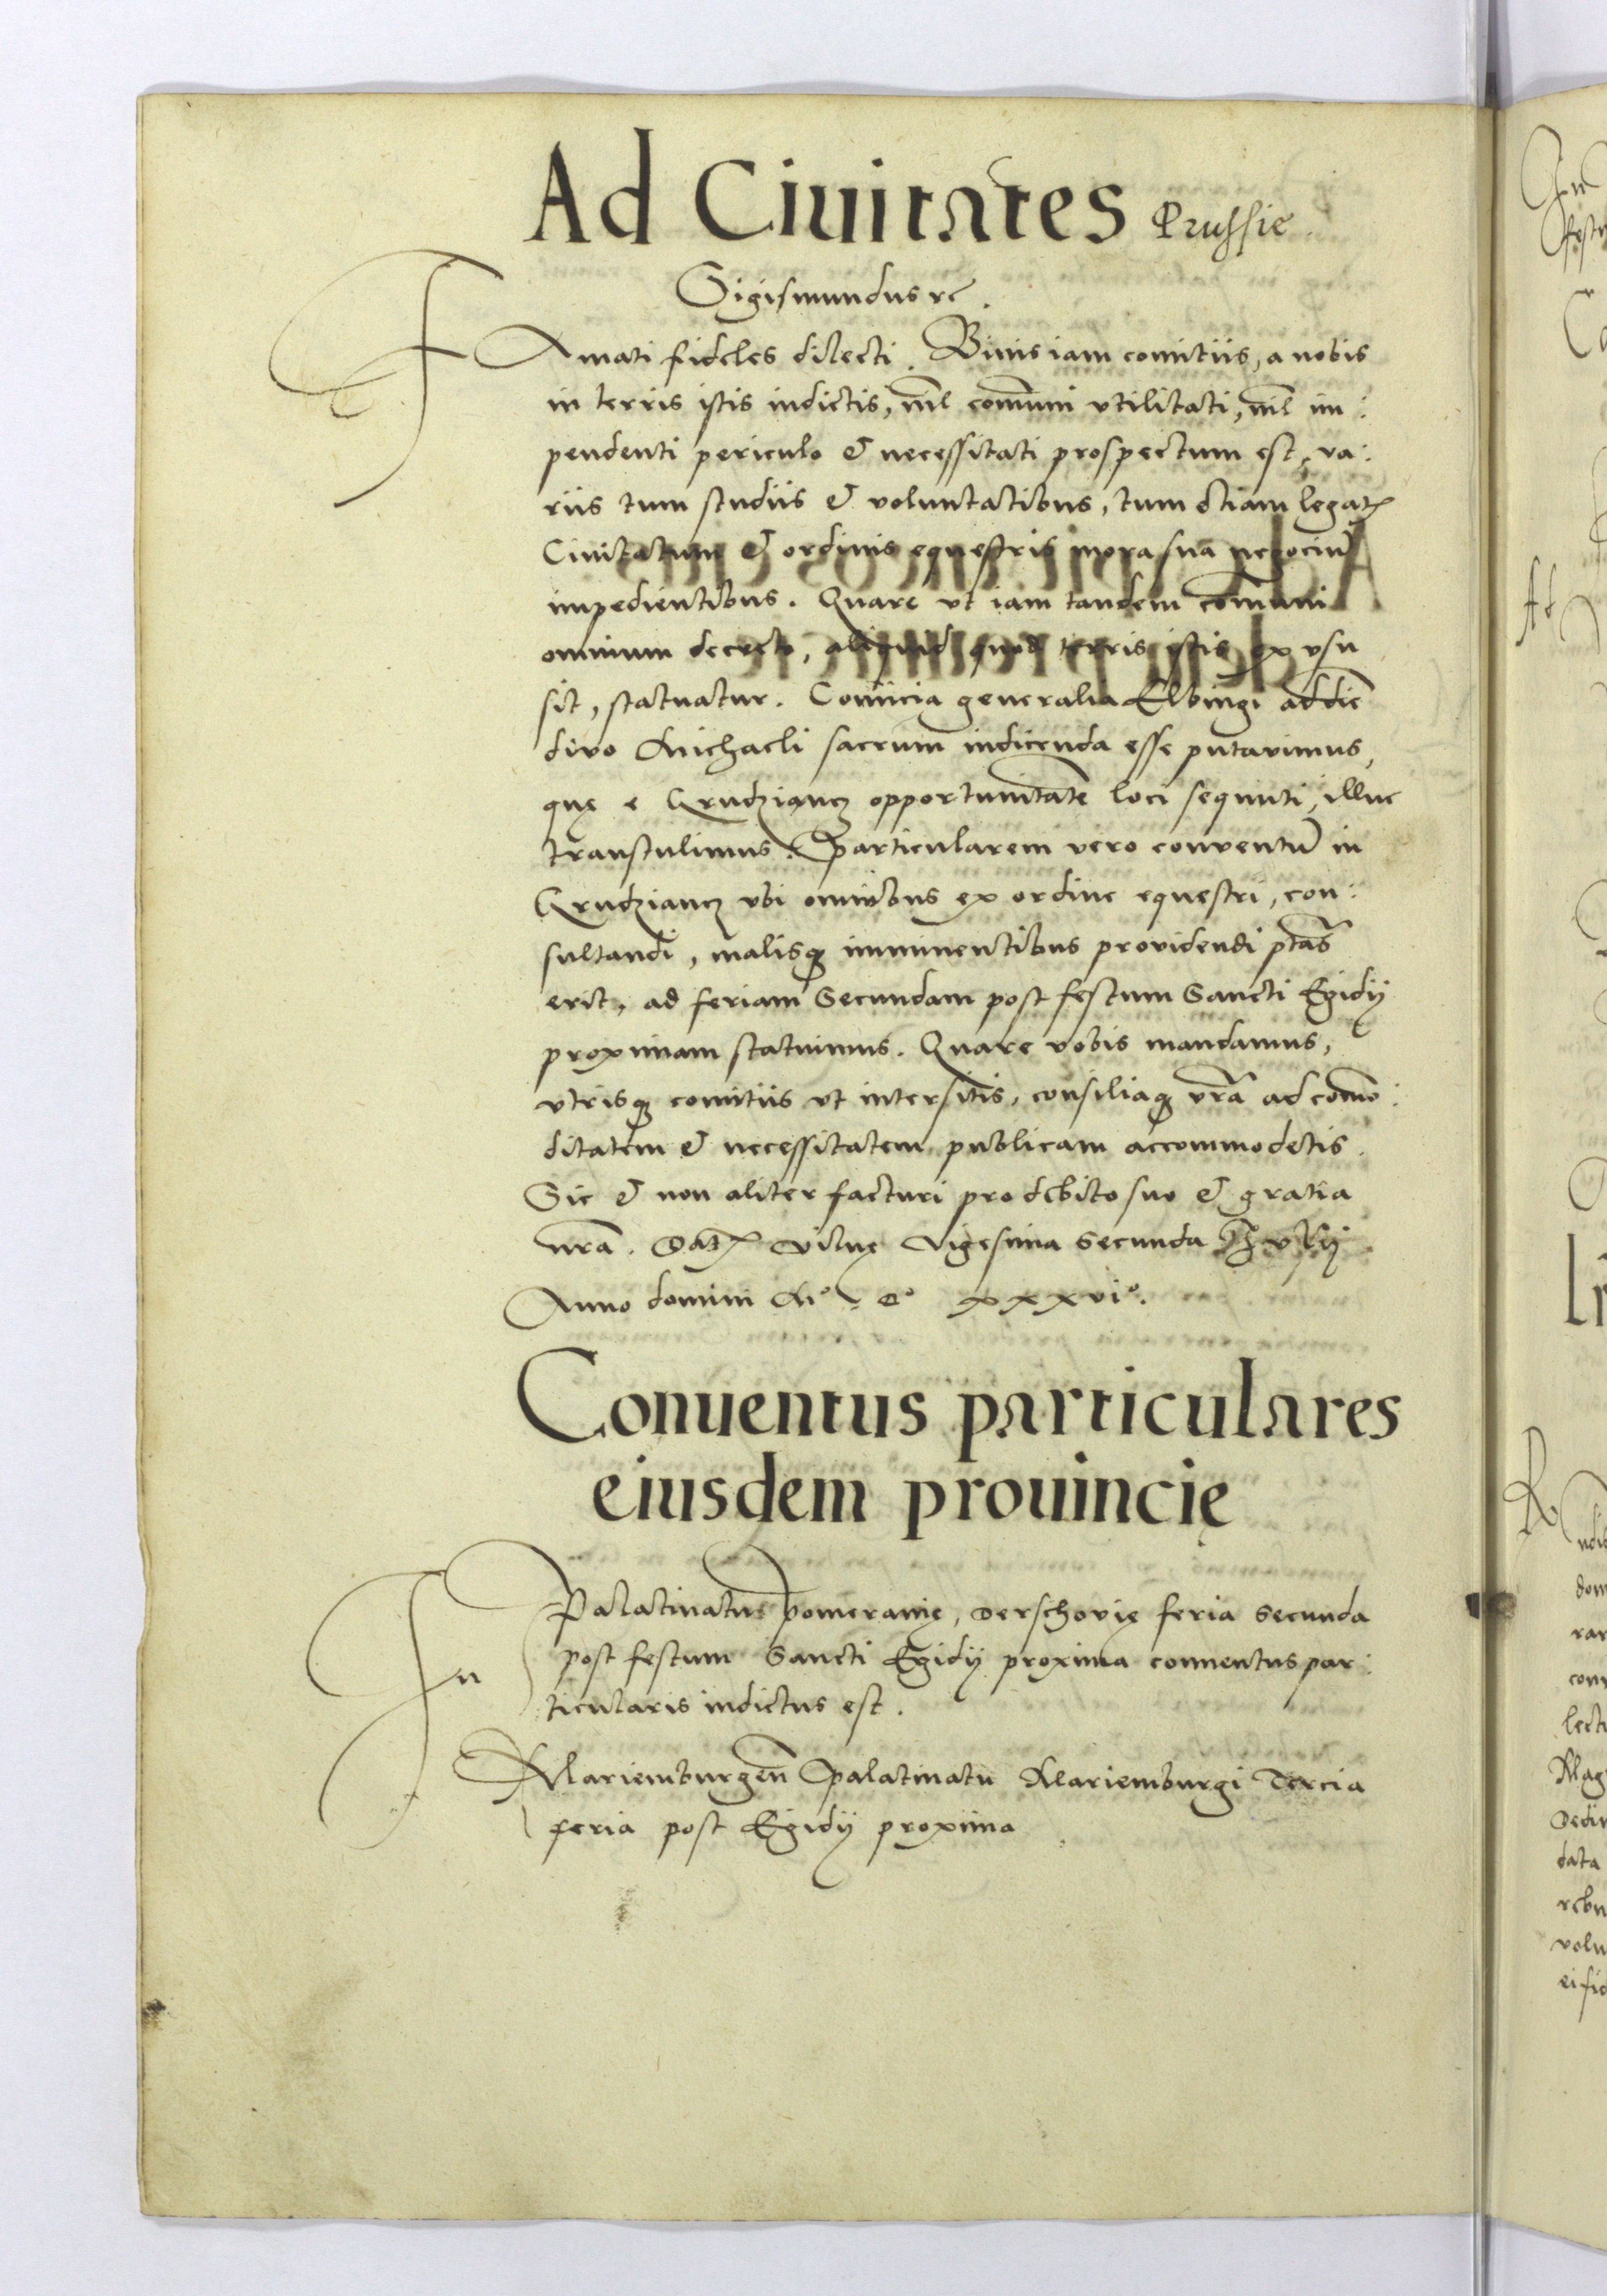 Ad Ciuitates Prussie.
Sigismundus rc.
Famati fideles dilecti. Binis iam comitiis, a nobis
in terris istis indictis, nil com̃uni vtilitati, nil im:
pendenti periculo & necessitati prospectum est, va:
riis tum studiis & voluntatibus, tum etiam legat
Ciuitatum & ordinis equestris mora sua negociũ
impedientibus. Quare vt iam tandem com̃uni
omnium decreto, aliquid quod terris istis ex vsu
sit, statuatur. Comicia generalia Elbingi ad diẽ
divo Michaeli sacrum indicenda esse putavimus,
quę e Grudziancz opportunitatẽ loci sequuti, illuc
transtulimus. Particularem vero conventũ in
Grudziancz vbi omnibus ex ordine equestri, con:
sultandi, malisq imminentibus providendi ptãs
erit, ad feriam Secundam post festum Sancti Egidij
proximam statuimus. Quare vobis mandamus,
vtrisq comitiis vt intersitis, consiliaq vrã ad com̃o:
ditatem & necessitatem publicam accommodetis.
Sic & non aliter facturi pro debito suo & gratia
nrã. Dat Vilnę Vigesima Secunda Julij
Anno domini Mº. Dº xxxviº.
Conuentus particulares
eiusdem prouincię
In Palatinatu Pomeranię, Derschovię feria Secunda
post festum Sancti Egidij proxima conuentus par:
ticularis indictus est.
Mariemburgeñ Palatinatu Mariemburgi Tercia
feria post Egidij proxima